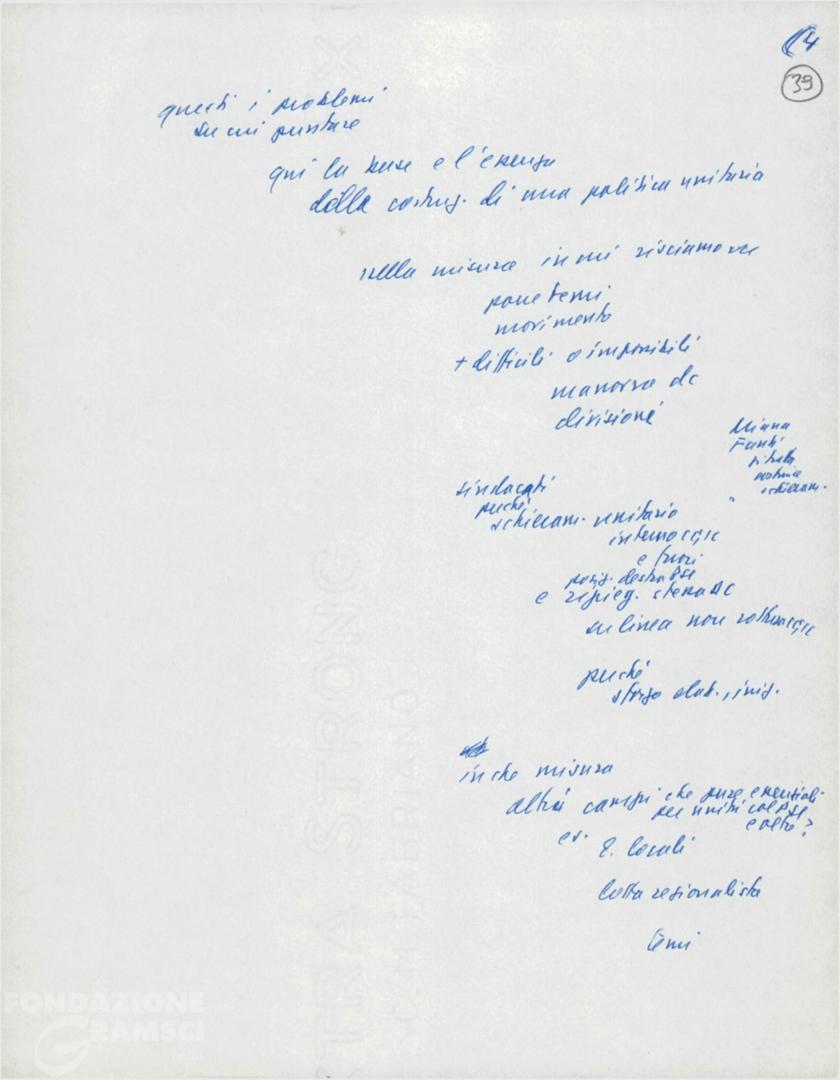 14
39
questi i problemi
su cui puntare
qui la base e l'essenza
della costruz. di una politica unitaria
nella misura in cui riusciamo a
porre temi
movimento
+ difficili o impossibili
manovra dc
divisione
Miana
Fanti
schieram.
sindacati
perché
schieram. unitario
interno CGIL
e fuori
posiz. destra PSI
e ripieg. stessa DC
su linea non rottura CGIL
perché
sforzo elab., iniz.
in che misura
altri campi che pure essenziali
per unità col PSI
e altro?
es.
E. locali
lotta regionalista
temi
FONDAZIONE
GRAMSCI
EXTRA STRONG
FABRIANO